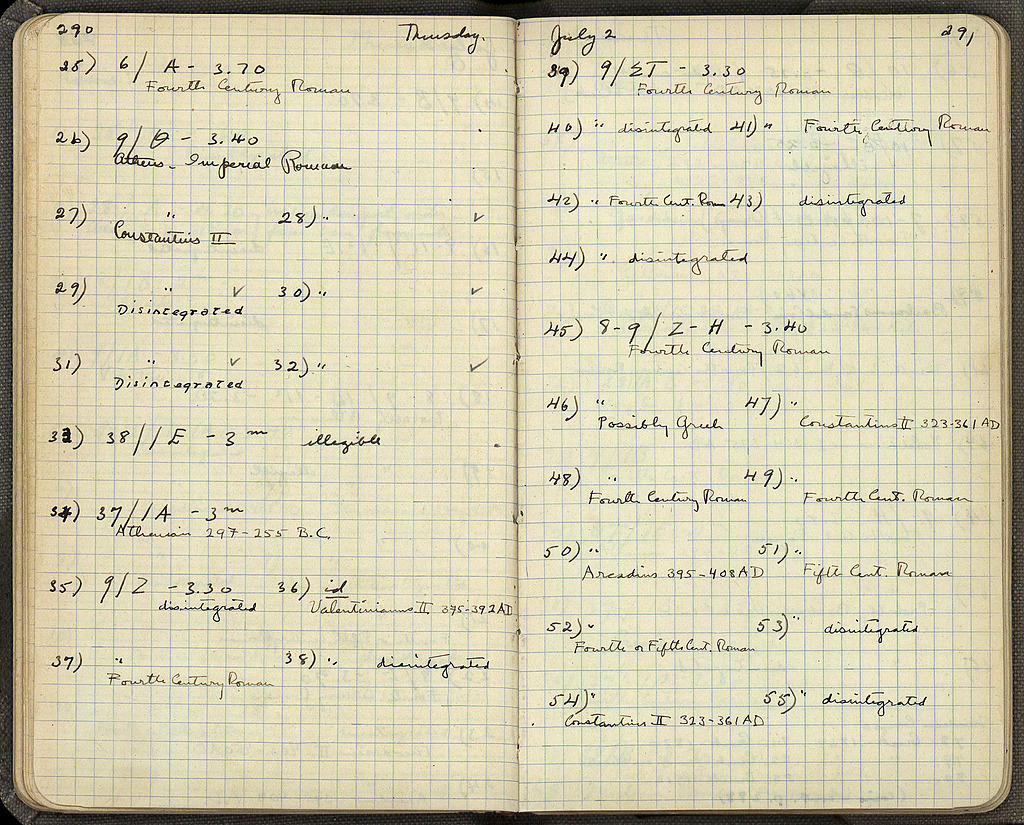 290 Thursday.
25) 6/ A - 3.70
Fourth Century Roman
26) 9/ Θ - 3.40
Athens - Imperial Roman
27) " 28) " ✓
Constantius II
29) " ✓ 30) " ✓
Disintegrated
31) " ✓ 32) " ✓
Disintegrated
33) 38// E - 3 m illegible
34) 37/ / A - 3 m
Athenian 297-255 B.C.
35) 9/ Z - 3.30 36) id
disintegrated Valentinianus II 375-392 AD
37) " 38) " disintegrated
Fourth Century Roman
July 2 291
39) 9/ ΣT - 3.30
Fourth Century Roman
40) " disintegrated 41) " Fourth Century Roman
42) " Fourth Cent. Rom 43) disintegrated
44) " disintegrated
45) 8-9/ Z-H - 3.40
Fourth Century Roman
46) " 47) "
Possibly Greek Constantius II 323-361 AD
48) " 49) "
Fourth Century Roman Fourth Cent. Roman
50) " 51) "
Arcadius 395-408 AD Fifth Cent. Roman
52) " 53) " disintegrated
Fourth or Fifth Cent. Roman
54) " 55) " disintegrated
Constantius II 323-361 AD